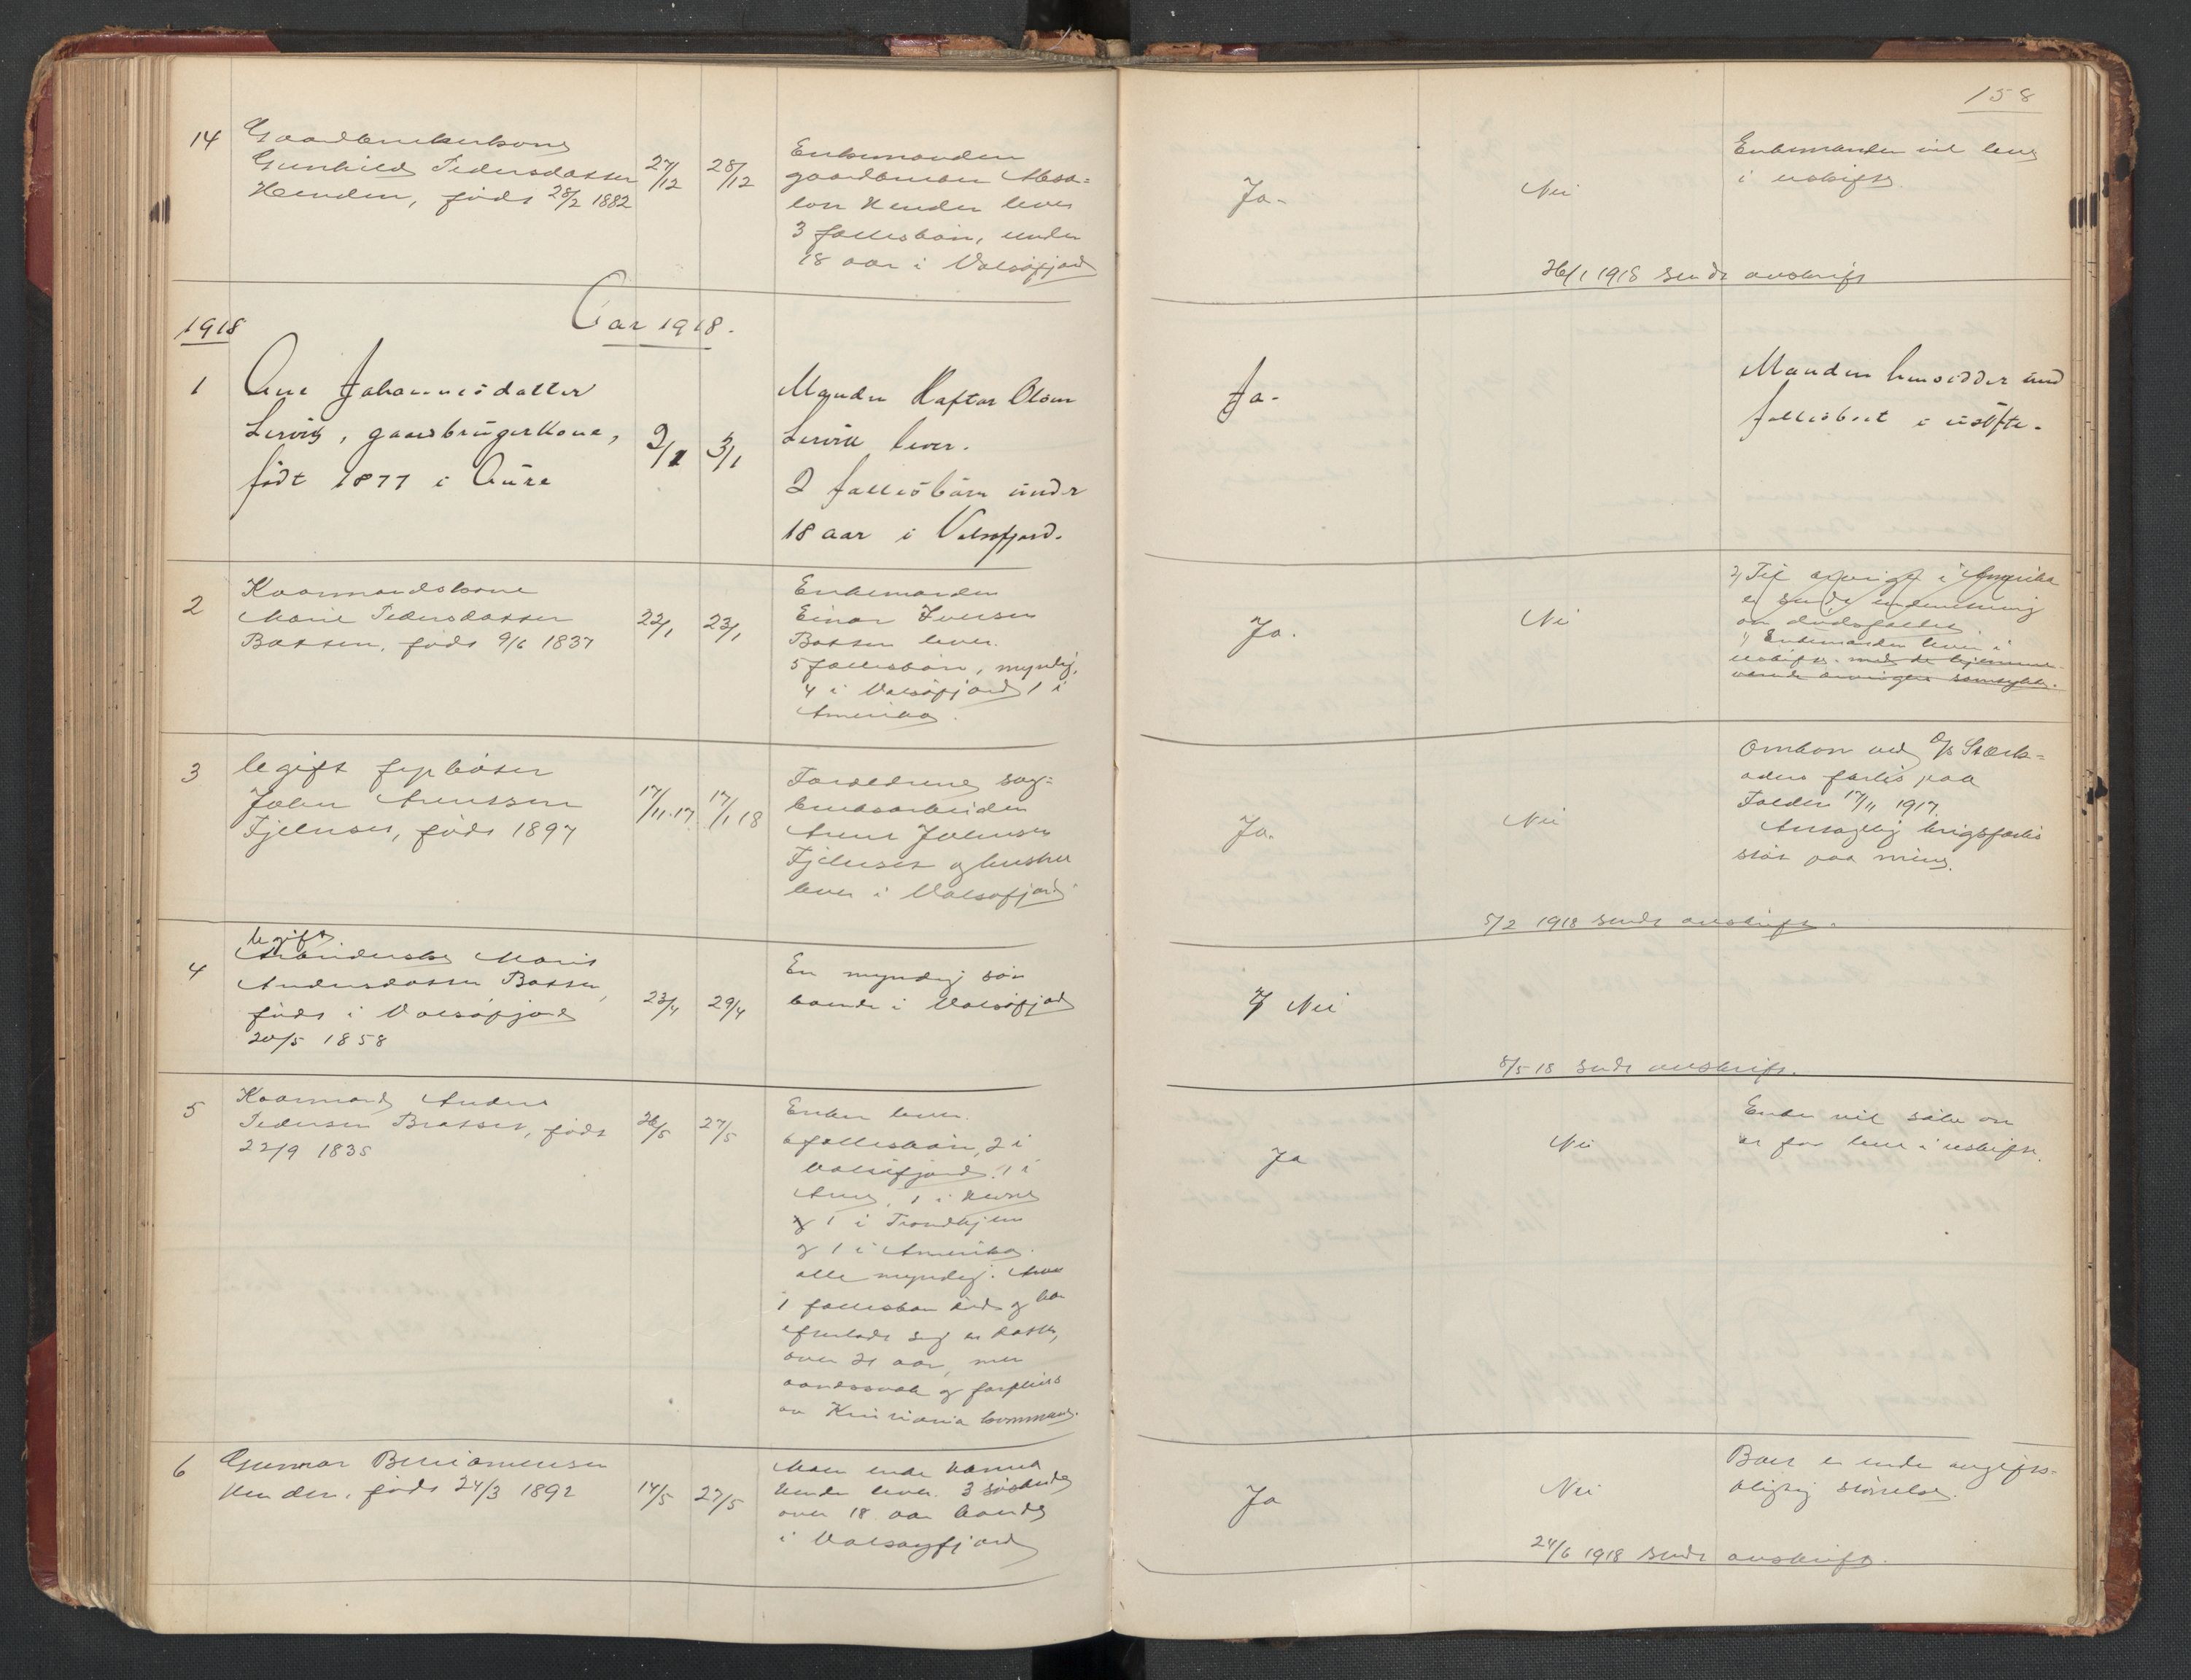 158
14
Gaardbrukerkone
Gunhild Pedersdatter
Henden, født 28/2 1882
27/12
28/12
Enkemanden
gaardbruker Absa=
lon Henden lever
3 fællesbørn, under
18 aar i Valsøfjord
Ja.
Nei
Enkemanden vil leve
i uskifte
26/1 1918 sendt avskrift
1918
Aar 1918.
1
Ane Johannesdatter
Lervik, gaardbrugerkone,
født 1877 i Aure
2/1
3/1
Manden Haftor Olsen
Lervik lever.
2 fællesbørn under
18 aar i Valsøfjord.
Ja.
Manden hensidder med
fællesboet i uskifte.
2
Kaarmandskone
Marie Pedersdatter
Botten, født 9/6 1837
22/1
23/1
Enkemanden
Einar Iversen
Botten lever.
5 fællesbørn, myndig,
4 i Valsøfjord 1 i
Amerika.
Ja.
Nei
2) Til arving i Amerika
er sendt underretning
om dødsfaldet.
1) Enkemanden lever i
uskifte. med de hjemme-
værende arvingers samtykke.
3
Ugift fyrbøter
Johan Arentsen
Fjelnset, født 1897
17/11.17
17/1 18
Forældrene sag=
bruksarbeider
Arent Johnsen
Fjelnset og hustru
lever i Valsøfjord
Ja.
Nei
Omkom ved D/S Stærk=
odders forlis paa
Folden 17/11 1917.
Antagelig krigsforlis
støt paa mine.
5/2 1918 sendt avskrift.
4
Ugift
Arbeiderske Marit
Andersdatter Botten,
født i Valsøfjord
20/5 1858
23/4
29/4
En myndig søn
boende i Valsøfjord
Nei
8/5 18 sendt avskrift.
5
Kaarmand Anders
Pedersen Brattset, født
22/9 1835
26/5
27/5
Enken lever.
6 fællesbørn, 2 i
Valsøfjord, 1 i
Aure, 1 i Hevne
og 1 i Trondhjem
og 1 i Amerika.
alle myndig.
1 fællesbarn død og har
efterladt sig en datter,
over 21 aar, men
aandssvak og forpleies
av Kristiania kommune.
Ja
Nei
Enken vil søke om
at faa leve i uskifte.
6
Gunnar Beniamensen
Henden, født 24/3 1892
14/5
27/5
Mor enke Hanna
Henden lever. 3 søskende
over 18 aar boende
i Valsøyfjord
Ja
Nei
Boet er under avgifts-
pligtig størrelse.
24/6 1918 sendt avskrift.